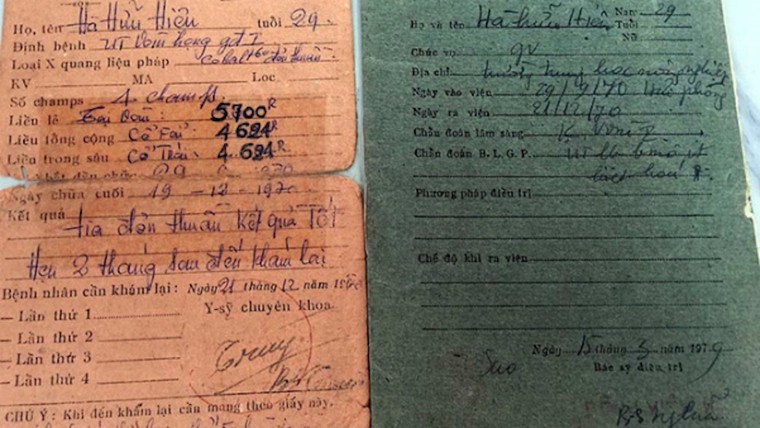 Họ, tên Hà Hữu Hiền tuổi 29
Định bệnh UT Vòm họng gđ I
Loại X quang liệu pháp Cobalt 60 đơn thuần
KV MA Loc
Số champs 4 champs
Liều lẻ Tại Vòm: 5700R
Liều tổng cộng Cổ Fải: 4694R
Liều trong sâu Cổ Trái: 4694R
Ngày chữa cuối 19-12-1970
Kết quả
tia đơn thuần kết quả Tốt
Hẹn 2 tháng sau đến khám lại
Bệnh nhân cần khám lại: Ngày 21 tháng 12 năm 19
— Lần thứ 1 Y-sỹ chuyên khoa
— Lần thứ 2
— Lần thứ 3
— Lần thứ 4
CHÚ Ý: Khi đến khám lại cần mang theo giấy này.
Họ và tên Hà Hữu Hiền Nam 29
Tuổi
Nữ
Chức vụ GV
Địa chỉ trường trung học nông nghiệp
Ngày vào viện 29/9/70 Hải phòng
Ngày ra viện 21/12/70
Chẩn đoán lâm sàng K. Vòm
Chẩn đoán B.L.G.P. UT
biệt hoá
Phương pháp điều trị
Chế độ khi ra viện
Ngày 15 tháng 5 năm 1979
Sao Bác sỹ điều trị
BS Nghĩa